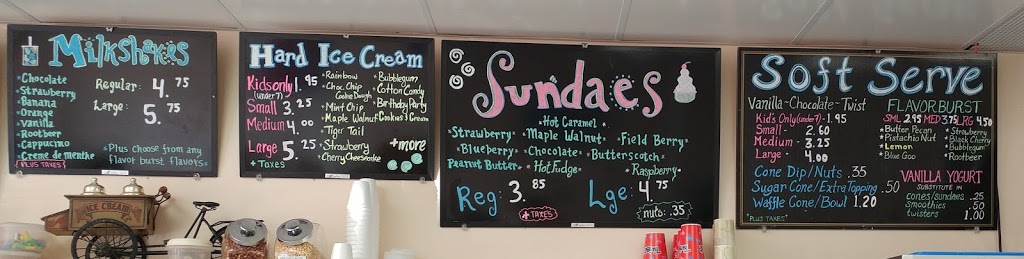 Milkshakes
Chocolate
Strawberry
Banana
Orange
Vanilla
Rootbeer
Cappuccino
Creme de menthe
PLUS TAXES
Regular: 4.75
Large: 5.75
*Plus choose from any
flavor burst flavors*
Hard Ice Cream
Kids only 1.95
(under 7)
Small 3.25
Medium 4.00
Large 5.25
*TAXES
*Rainbow
*Choc. Chip
Cookie Dough
*Mint Chip
*Maple Walnut
*Tiger Tail
*Strawberry
*Cherry Cheesecake
*Bubblegum
*Cotton Candy
*Birthday Party
*Cookies & Cream
+more
Sundaes
*Hot Caramel*
*Strawberry* *Maple Walnut* *Field Berry*
*Blueberry* *Chocolate* *Butterscotch*
Peanut Butter* *Hot Fudge* *Raspberry*
Reg: 3.85 Lge: 4.75
+TAXES nuts: .35
Soft Serve
Vanilla~Chocolate~Twist
Kid's Only (under 7) - 1.95
Small - 2.60
Medium - 3.25
Large - 4.00
Cone Dip/Nuts .35
Sugar Cone/Extra Topping .50
Waffle Cone/Bowl 1.20
*PLUS TAXES*
FLAVOR BURST
SML 2.95 MED 3.75 LRG 4.50
*Butter Pecan
*Pistachio Nut
*Lemon
*Blue Goo
*Strawberry
*Black Cherry
*Bubblegum
*Rootbeer
VANILLA YOGURT
SUBSTITUTE IN
cones/sundaes .25
smoothies .50
twisters 1.00
ICE CREAM